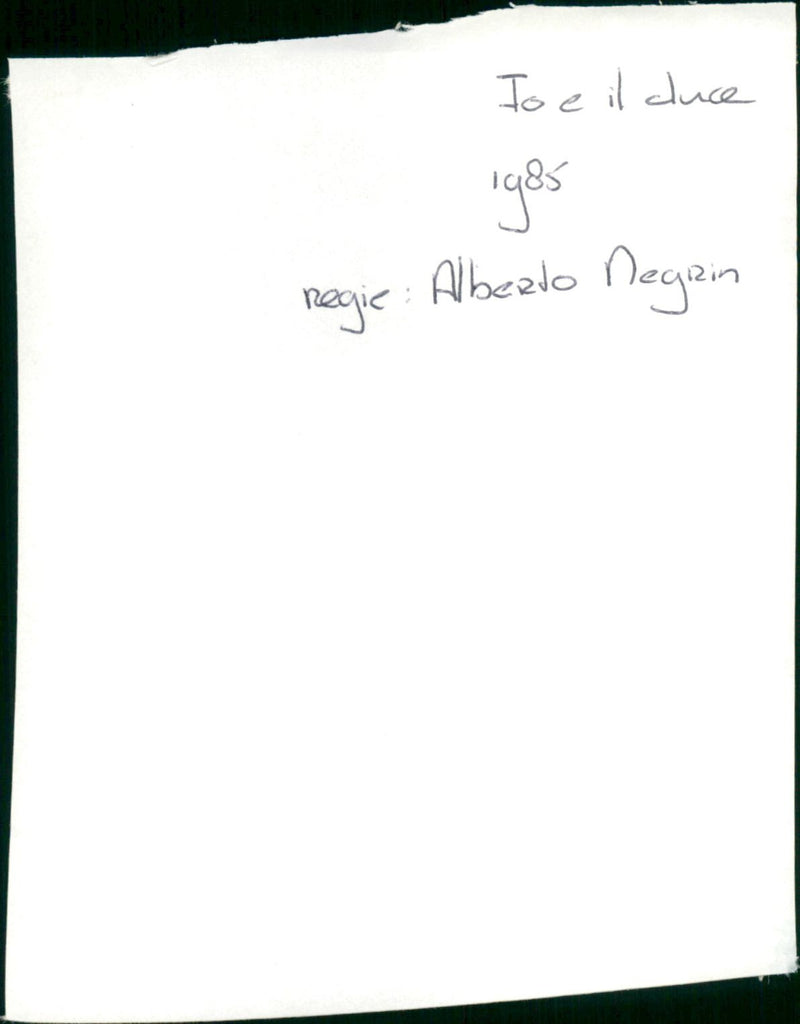 Io e il duce
1985
regie: Alberto Negrin